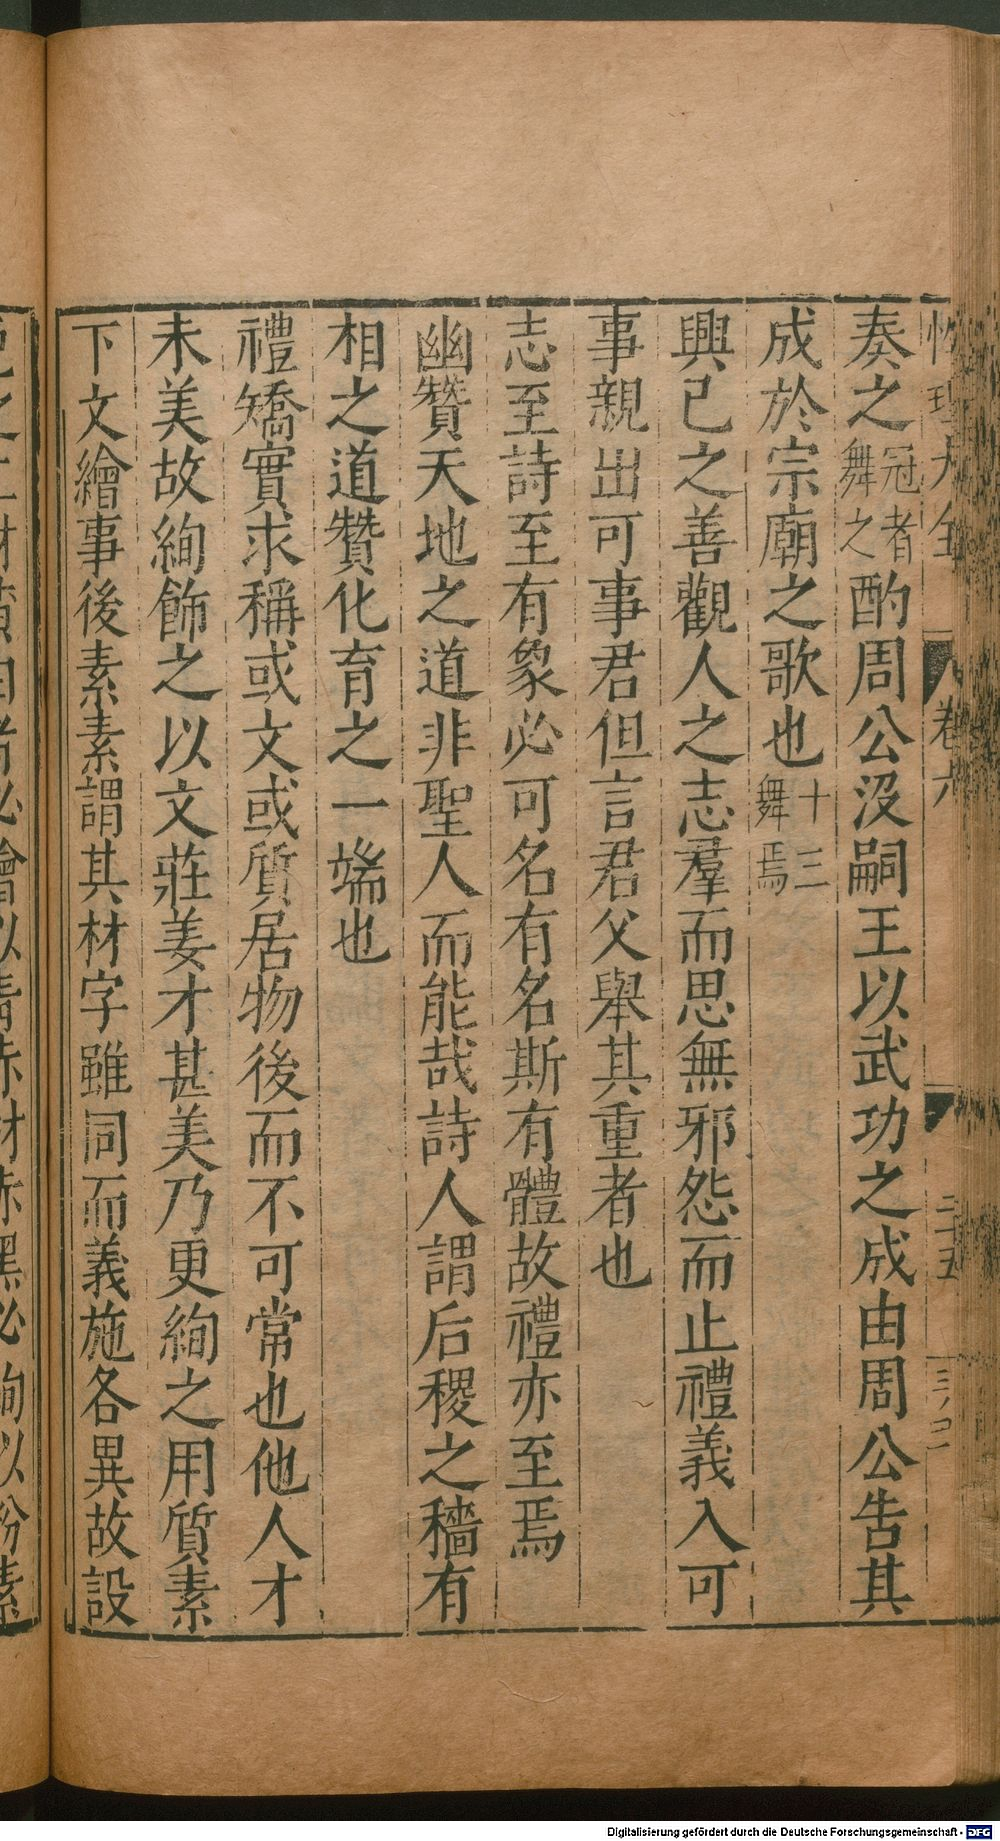 性理大全 卷六 三十五
奏之冠者舞之酌周公沒嗣王以武功之成由周公告其
成於宗廟之歌也十三舞焉
興己之善觀人之志羣而思無邪怨而止禮義入可
事親出可事君但言君父舉其重者也
志至詩至有象必可名有名斯有體故禮亦至焉
幽贊天地之道非聖人而能哉詩人謂后稷之穡有
相之道贊化育之一端也
禮矯實求稱或文或質居物後而不可常也他人才
未美故絢飾之以文莊姜才甚美乃更絢之用質素
下文繪事後素素謂其材字雖同而義施各異故設
Digitalisierung gefördert durch die Deutsche Forschungsgemeinschaft - DFG